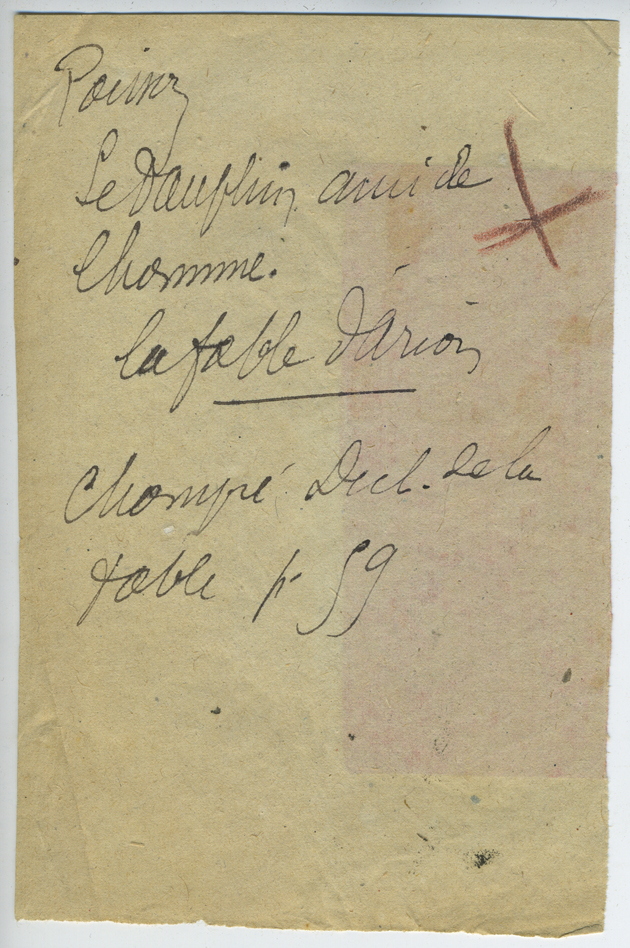 Le Dauphin ami de
l'homme.
la fable d'Arion
Chompré Dict. de la
fable p 59